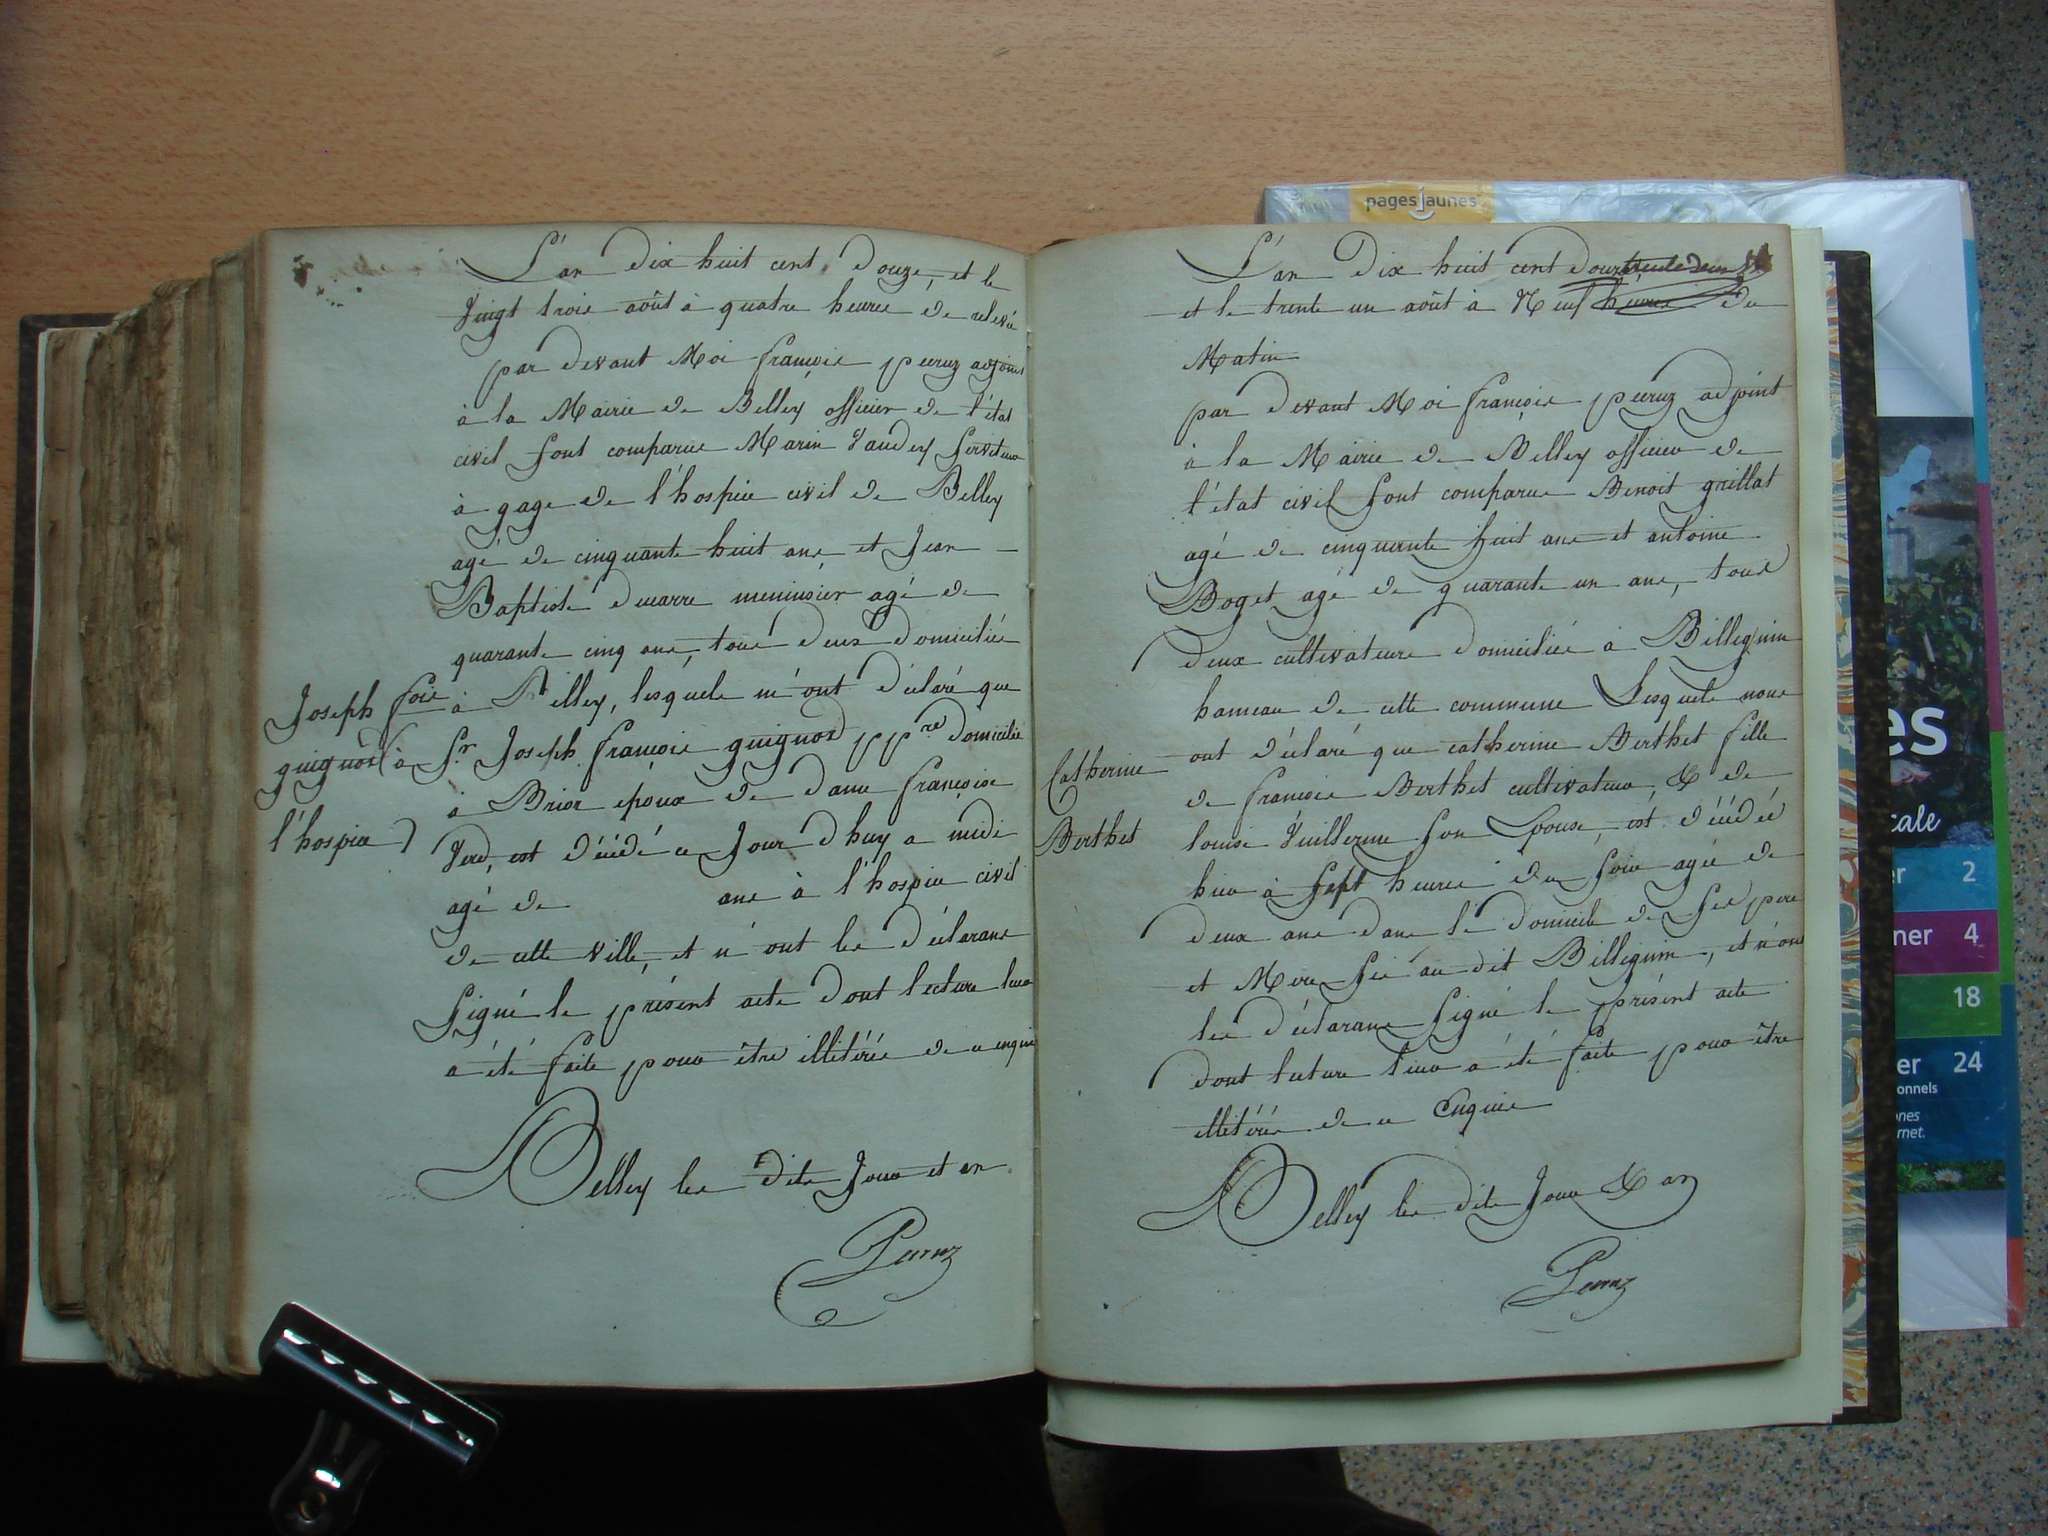 L'an dix huit cent douze, et le
Vingt trois août à quatre heures de relevée
par devant Moi françois peruz adjoint
à la Mairie de Belley officier de l'état
civil sont comparus Marin Vaudey serviteur
à gage de l'hospice civil de Belley
agé de cinquante huit ans et Jean
Baptiste ducarre menuisier agé de
quarante cinq ans, tous deux domiciliés
à Belley, lesquels m'ont déclaré que
Sr. Joseph françois guignod ppre domicilié
à Brior époux de dame françoise
Verd, est décédé ce Jour d'huy a midi
agé de ans à l'hospice civil
de cette ville, et n'ont les déclarans
signé le présent acte dont lecture leur
a été faite pour être illitérés de ce enquis
Belley les dits Jour et an
Peruz
Joseph fois
guignod à
l'hospice
L'an dix huit cent douze
et le trente un août à Neuf heures du
Matin
par devant Moi françois peruz adjoint
à la Mairie de Belley officier de
l'état civil sont comparus Benoit grillat
agé de cinquante huit ans et antoine
Boget agé de quarante un ans, tous
deux cultivateurs domiciliés à Billegnin
hameau de cette commune Lesquels nous
ont déclaré que catherine Berthet fille
de françois Berthet cultivateur, & de
louise Vuillerme son Epouse, est décédée
hier à sept heures du soir agée de
deux ans dans le domicile de ses pere
et Mere sis au dit Billegnin, et n'ont
les déclarans signé le présent acte
dont lecture leur a été faite pour être
illitérés de ce Enquis
Belley les dits Jour & an
Peruz
Catherine
Berthet
pagesjaunes
es
cale
er 2
ner 4
18
er 24
onnels
ones
rnet.